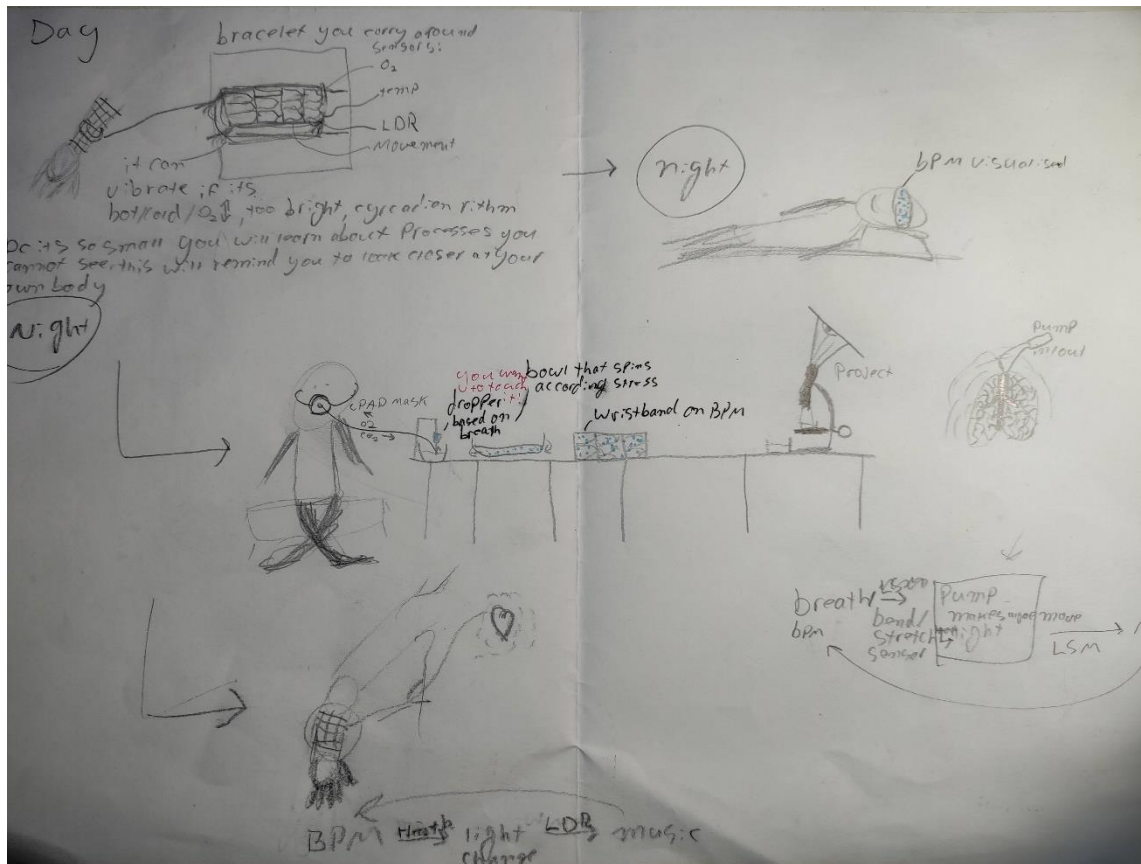 Day
bracelet you carry around
sensors:
O₂
temp
LDR
Movement
it can
vibrate if its
hot/cold/O₂, too bright, cyrcadian rithm
its so small you will learn about Processes you
cannot see. this will remind you to look closer at your
own body
night
BPM visualised
Night
CPAD mask
O2
CO₂
you want
to teach
it!
dropper
based on
breath
bowl that spins
according stress
wristband on BPM
Project
Pump
in/out
breath
bpm
band/
stretch
sensor
Pump
makes move
light
LSM
BPM light LDR music
change